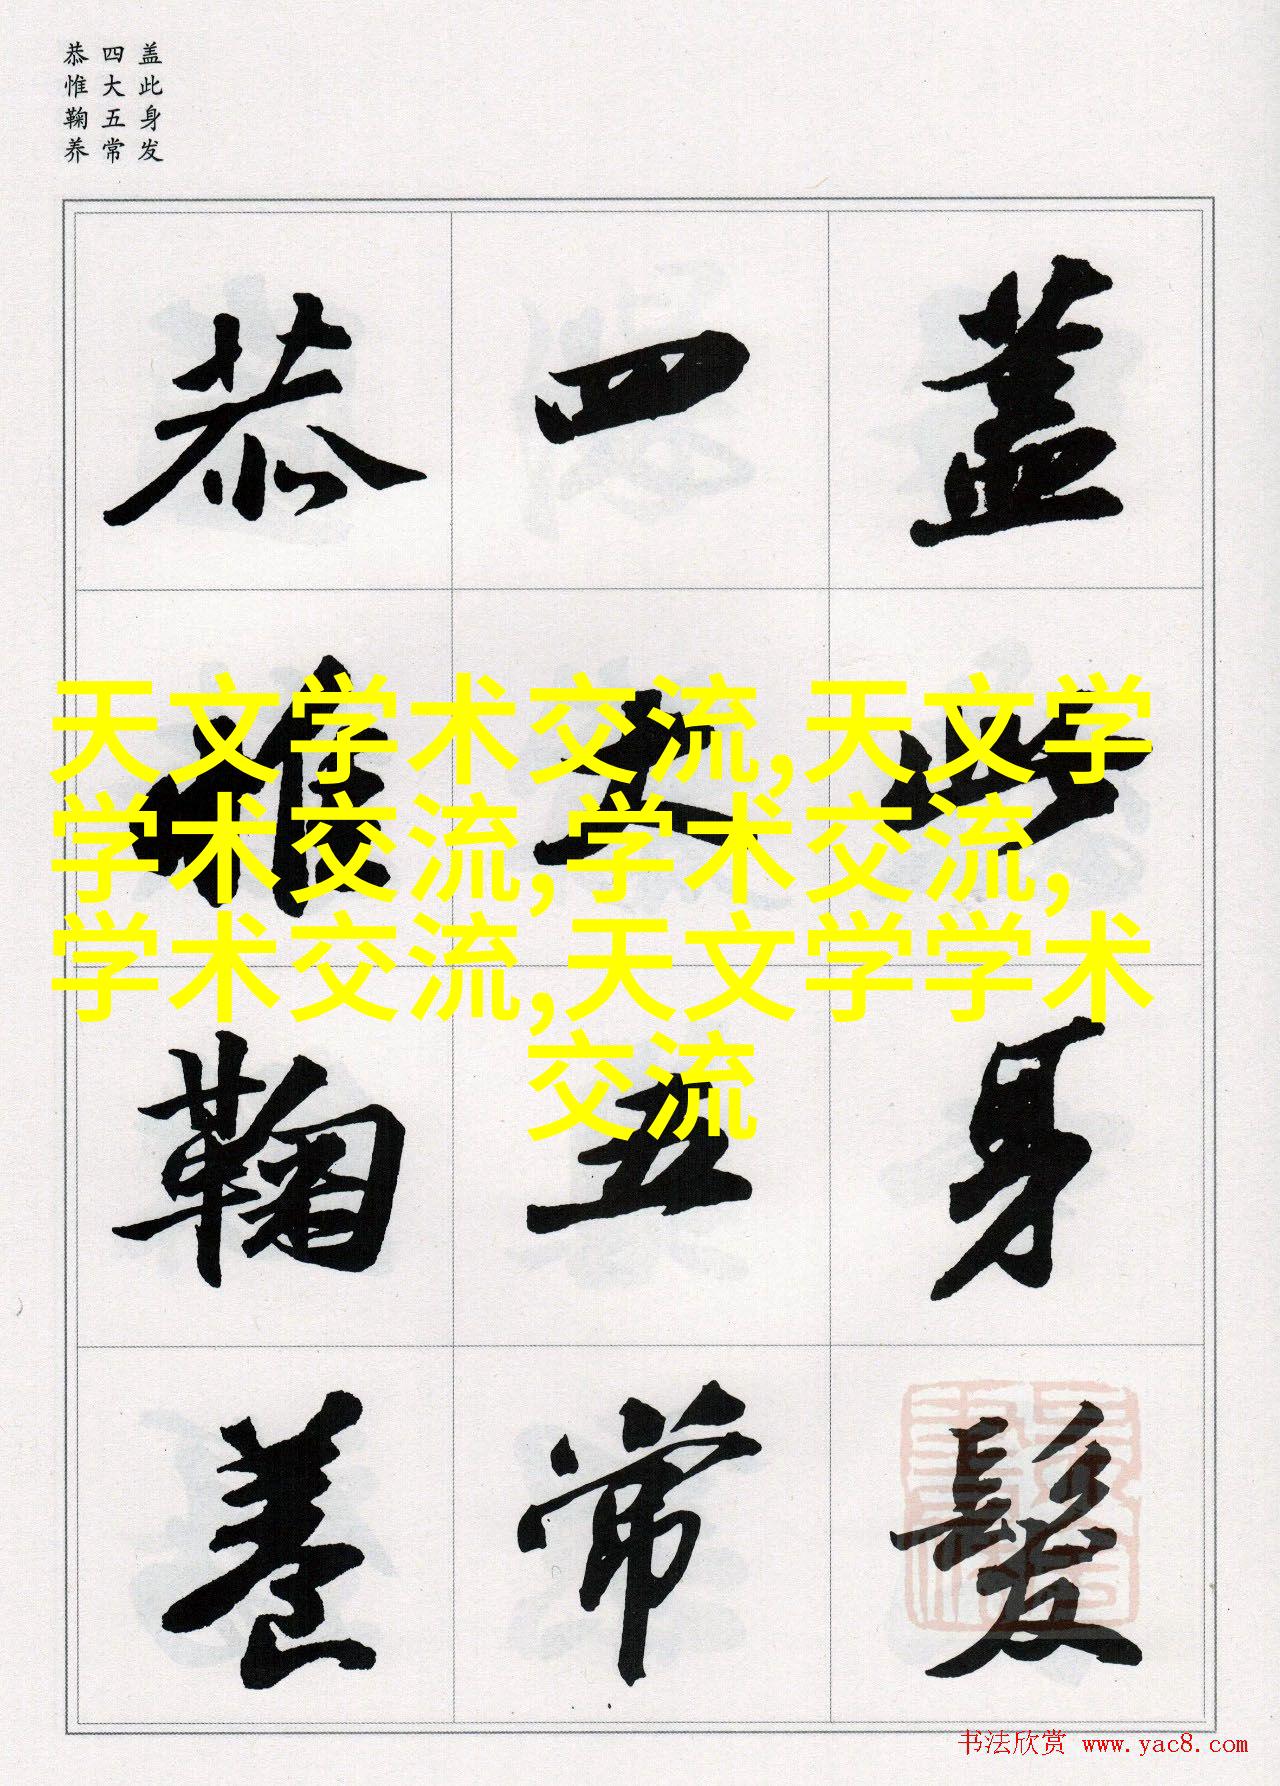 盖此身发
四大五常
恭惟鞠养
蓋此身髮
四大五常
恭惟鞠養
天文学术交流,天文学
学术交流,学术交流,
学术交流,天文学学术
交流
书法欣赏 www.yac8.com